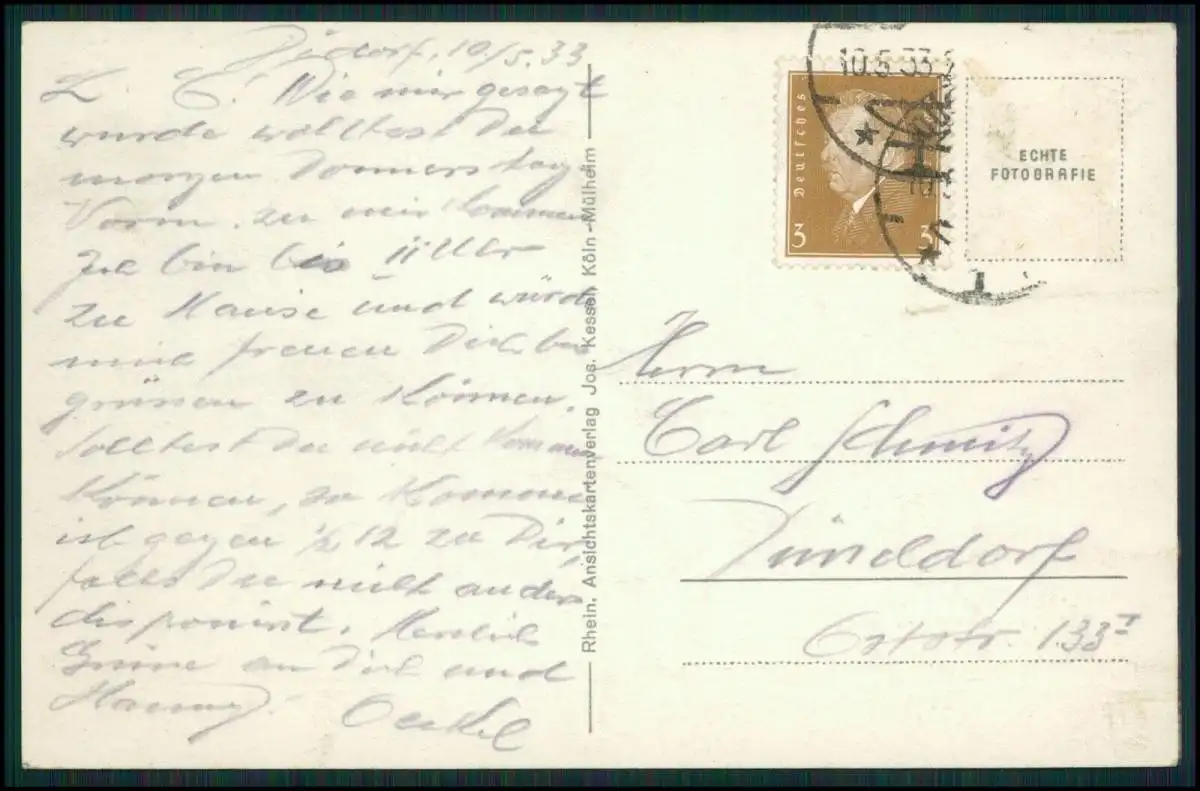 Ddorf, 10/5.33
L. C! Wie mir gesagt
wurde wolltest Du
morgen Donnerstag
Vorm. zu mir kommen
Ich bin bis 11 Uhr
zu Hause und würde
mich freuen Dich be
grüssen zu können.
Solltest Du nicht kommen
können, so komme
ich gegen ½ 12 zu Dir,
falls Du nicht anders
disponirst. Herzlich
Grüsse an Dich und
Onkel
Rhein. Ansichtskartenverlag Jos. Kessel Köln-Mülheim
Deutsches
3 3
10.5.33
ECHTE
FOTOGRAFIE
Herrn
Carl Schmitz
Düsseldorf
133 I